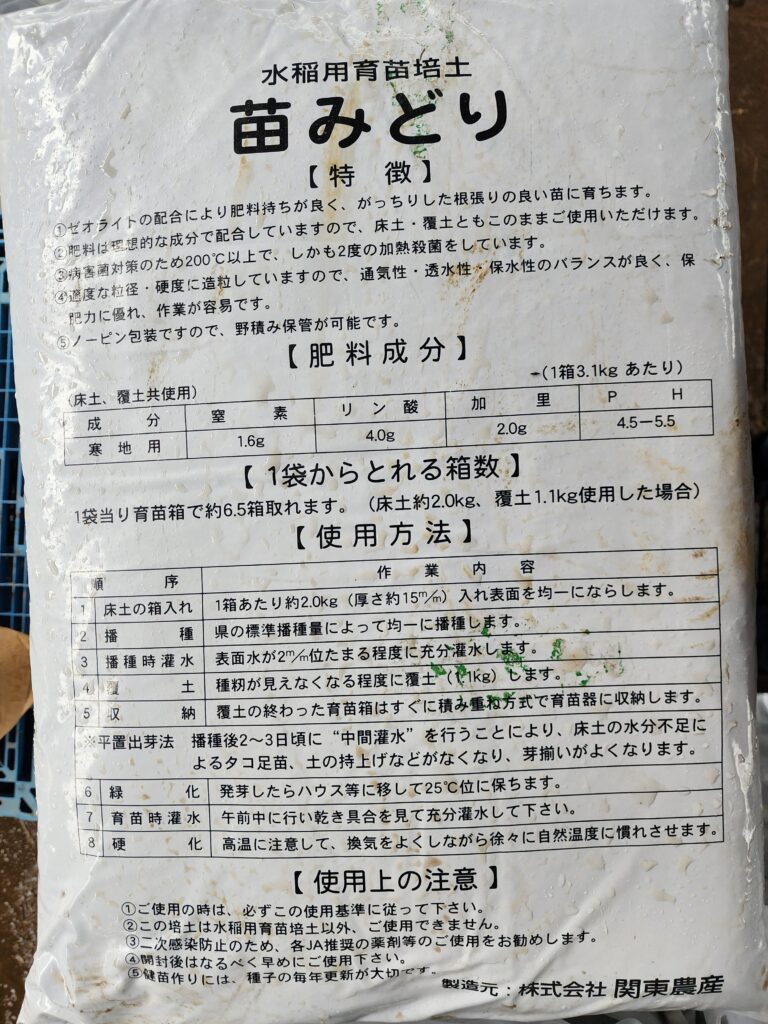 水稲用育苗培土
苗みどり
【特 徴】
①ゼオライトの配合により肥料持ちが良く、がっちりした根張りの良い苗に育ちます。
②肥料は理想的な成分で配合していますので、床土・覆土ともこのままご使用いただけます。
③病害菌対策のため200℃以上で、しかも2度の加熱殺菌をしています。
④適度な粒径・硬度に造粒していますので、通気性・透水性・保水性のバランスが良く、保
肥力に優れ、作業が容易です。
⑤ノーピン包装ですので、野積み保管が可能です。
【肥料成分】
(床土、覆土共使用) (1箱3.1kg あたり)
成 分 窒 素 リ ン 酸 加 里 P H
寒 地 用 1.6g 4.0g 2.0g 4.5ー5.5
【1袋からとれる箱数】
1袋当り育苗箱で約6.5箱取れます。(床土約2.0kg、覆土1.1kg使用した場合)
【使用方法】
順 序 作 業 内 容
1 床土の箱入れ 1箱あたり約2.0kg(厚さ約15m/m)入れ表面を均一にならします。
2 播 種 県の標準播種量によって均一に播種します。
3 播種時灌水 表面水が2m/m位たまる程度に充分灌水します。
4 覆 土 種籾が見えなくなる程度に覆土(1.1kg)します。
5 収 納 覆土の終わった育苗箱はすぐに積み重ね方式で育苗器に収納します。
※平置出芽法 播種後2〜3日頃に“中間灌水”を行うことにより、床土の水分不足に
よるタコ足苗、土の持上げなどがなくなり、芽揃いがよくなります。
6 緑 化 発芽したらハウス等に移して25℃位に保ちます。
7 育苗時灌水 午前中に行い乾き具合を見て充分灌水して下さい。
8 硬 化 高温に注意して、換気をよくしながら徐々に自然温度に慣れさせます。
【使用上の注意】
①ご使用の時は、必ずこの使用基準に従って下さい。
②この培土は水稲用育苗培土以外、ご使用できません。
③二次感染防止のため、各JA推奨の薬剤等のご使用をお勧めします。
④開封後はなるべく早めにご使用下さい。
⑤健苗作りには、種子の毎年更新が大切です。
製造元:株式会社 関東農産